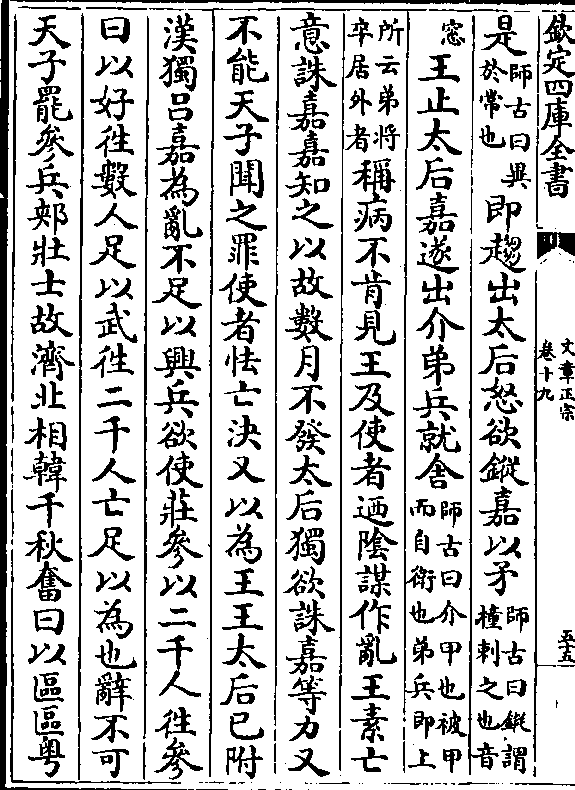 欽定四庫全書
文章正宗
卷十九
五十五
是師古曰異於常也即趨出太后怒欲鏦嘉以矛師古曰鏦謂橦刺之也音
窓王止太后嘉遂出介弟兵就舍師古曰介甲也被甲而自衛也弟兵即上
所云弟將卒居外者稱病不肯見王及使者迺陰謀作亂王素亡
意誅嘉嘉知之以故數月不發太后獨欲誅嘉等力又
不能天子聞之罪使者怯亡決又以為王王太后已附
漢獨呂嘉為亂不足以興兵欲使莊參以二千人徃參
曰以好徃數人足以武徃二千人亡足以為也辭不可
天子罷叅兵郟壯士故濟北相韓千秋奮曰以區區粤